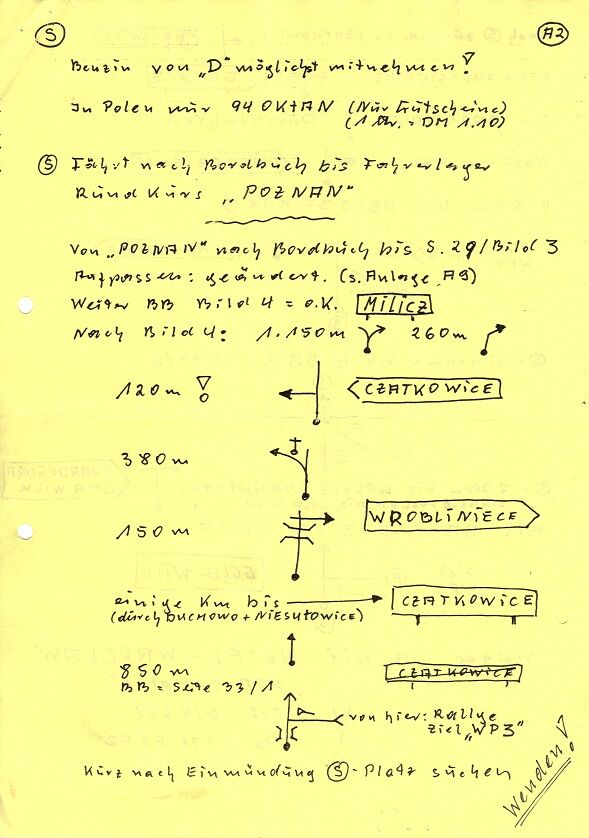 S A2
Benzin von „D" möglichst mitnehmen!
In Polen nur 94 OKTAN (Nur Gutscheine)
(1 Ltr. = DM 1.10)
S Fährt nach Bordbuch bis Fahrerlager
Rund Kurs „POZNAN"
Von „POZNAN" nach Bordbuch bis S. 29/Bild 3
Aufpassen: geändert. (s. Anlage A3)
Weiter BB Bild 4 = o.K. MILICZ
Nach Bild 4: 1.150m 260m
120m ! CZATKOWICE
380m
150m WROBLINIECE
einige Km bis CZATKOWICE
(durch DUCHOWO + NIESUŁOWICE)
850m CZATKOWICE
BB = Seite 33/1
von hier: Rallye
Ziel „WP3"
Kurz nach Einmündung S - Platz suchen
Wenden!